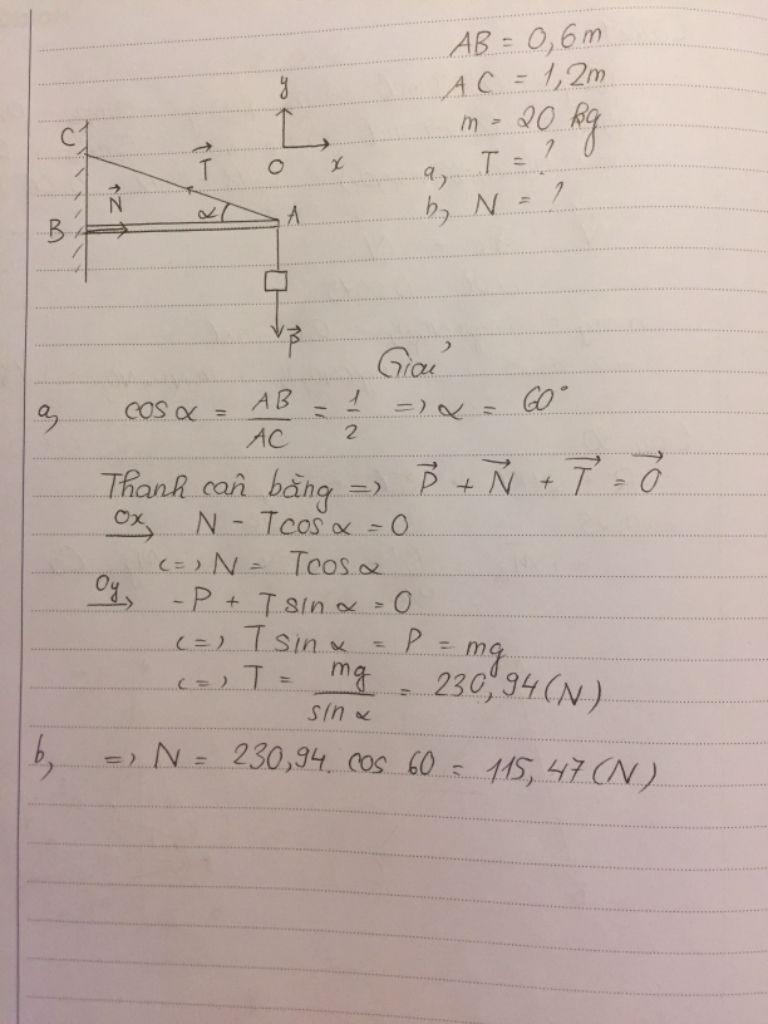 AB = 0,6m
AC = 1,2m
m = 20 kg
a, T = ?
b, N = ?
y
O x
C
T⃗
N⃗ α A
B
P⃗
Giải
a, cos α = AB/AC = 1/2 => α = 60°
Thanh cân bằng => P⃗ + N⃗ + T⃗ = 0⃗
Ox→ N - Tcos α = 0
<=> N = Tcos α
Oy→ -P + T sin α = 0
<=> T sin α = P = mg
<=> T = mg/sin α = 230,94 (N)
b, => N = 230,94. cos 60 = 115,47 (N)